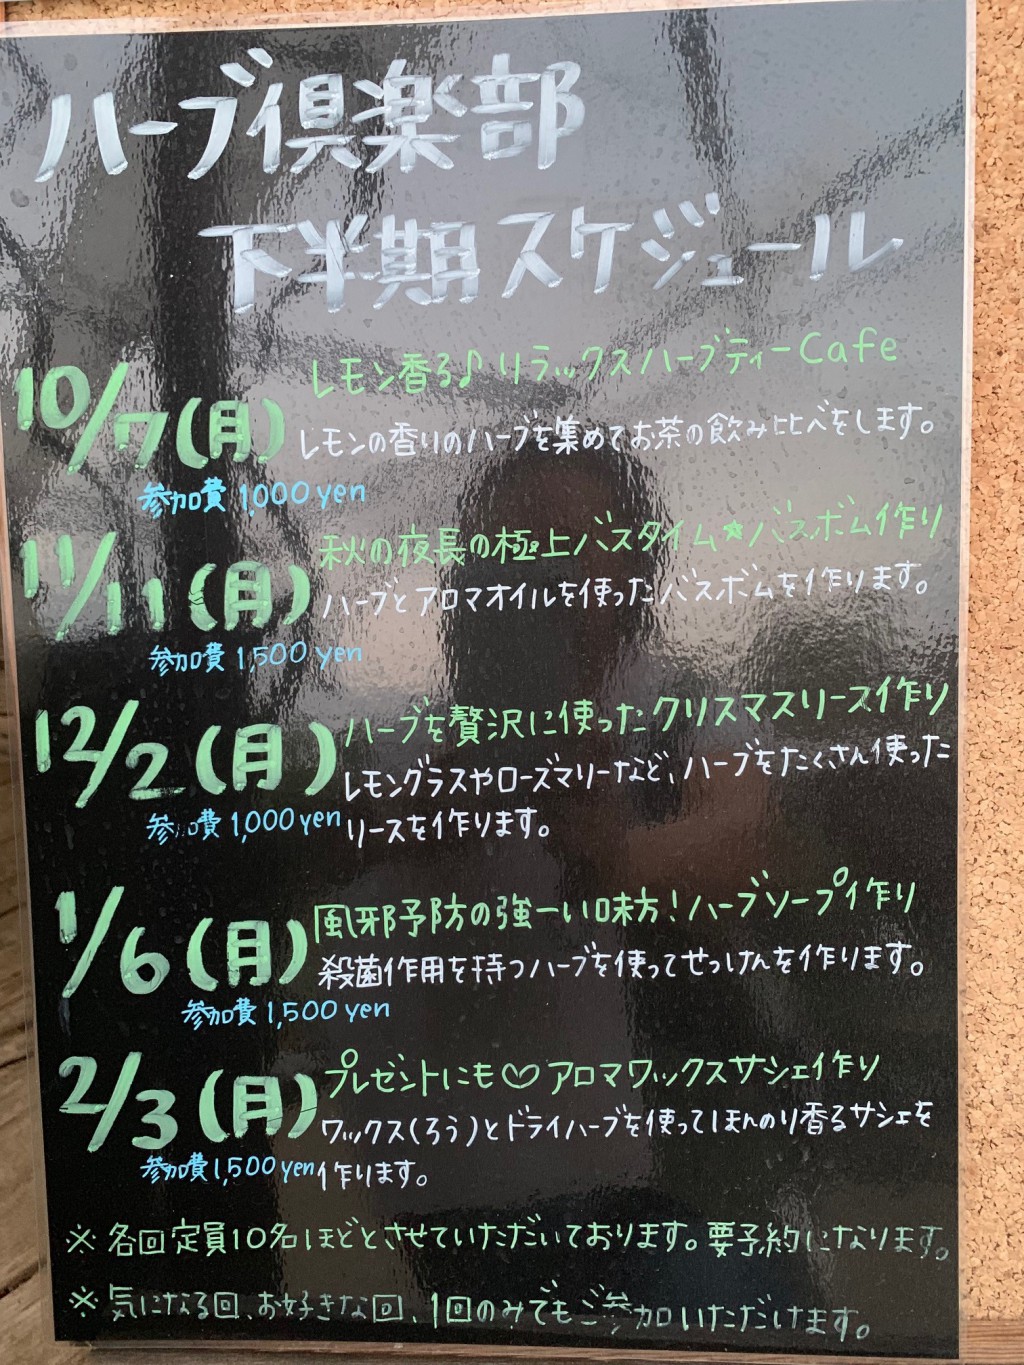 ハーブ倶楽部
下半期スケジュール
10/7(月)
レモン香る♪リラックスハーブティーCafe
レモンの香りのハーブを集めてお茶の飲み比べをします。
参加費 1,000 yen
11/11(月)
秋の夜長の極上バスタイム★バスボム作り
ハーブとアロマオイルを使ったバスボムを作ります。
参加費 1,500 yen
12/2(月)
ハーブを贅沢に使ったクリスマスリース作り
レモングラスやローズマリーなど、ハーブをたくさん使った
リースを作ります。
参加費 1,000 yen
1/6(月)
風邪予防の強ーい味方!ハーブソープ作り
殺菌作用を持つハーブを使ってせっけんを作ります。
参加費 1,500 yen
2/3(月)
プレゼントにも♡アロマワックスサシェ作り
ワックス(ろう)とドライハーブを使ってほんのり香るサシェを
作ります。
参加費 1,500 yen
※ 各回定員10名ほどとさせていただいております。要予約になります。
※ 気になる回、お好きな回、1回のみでもご参加いただけます。